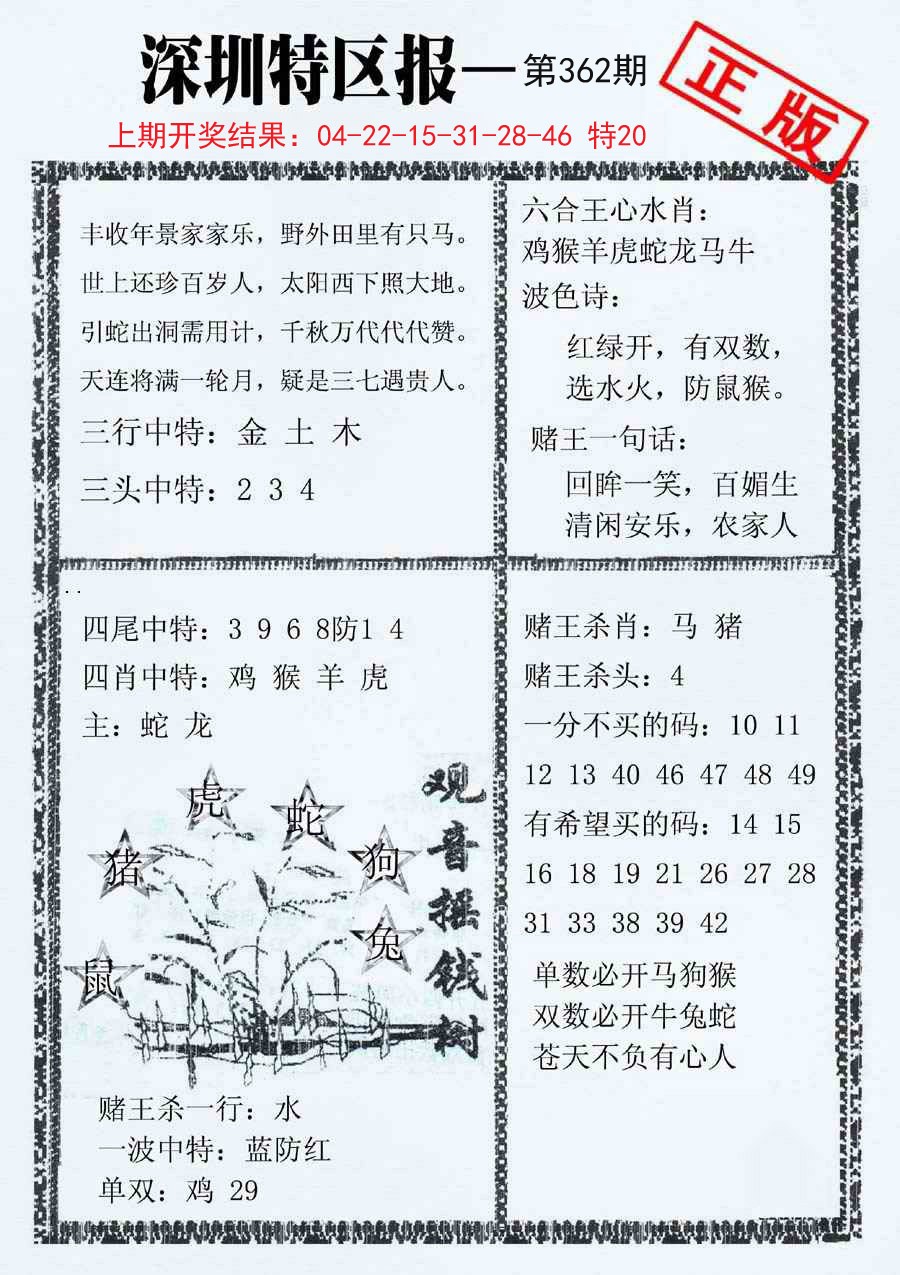 深圳特区报—第362期
正版
上期开奖结果：04-22-15-31-28-46 特20
丰收年景家家乐，野外田里有只马。
世上还珍百岁人，太阳西下照大地。
引蛇出洞需用计，千秋万代代代赞。
天连将满一轮月，疑是三七遇贵人。
三行中特：金 土 木
三头中特：2 3 4
六合王心水肖：
鸡猴羊虎蛇龙马牛
波色诗：
红绿开，有双数，
选水火，防鼠猴。
赌王一句话：
回眸一笑，百媚生
清闲安乐，农家人
四尾中特：3 9 6 8防1 4
四肖中特：鸡 猴 羊 虎
主：蛇 龙
虎
蛇
猪
狗
兔
鼠
观音摇钱树
赌王杀一行：水
一波中特：蓝防红
单双：鸡 29
赌王杀肖：马 猪
赌王杀头：4
一分不买的码：10 11
12 13 40 46 47 48 49
有希望买的码：14 15
16 18 19 21 26 27 28
31 33 38 39 42
单数必开马狗猴
双数必开牛兔蛇
苍天不负有心人